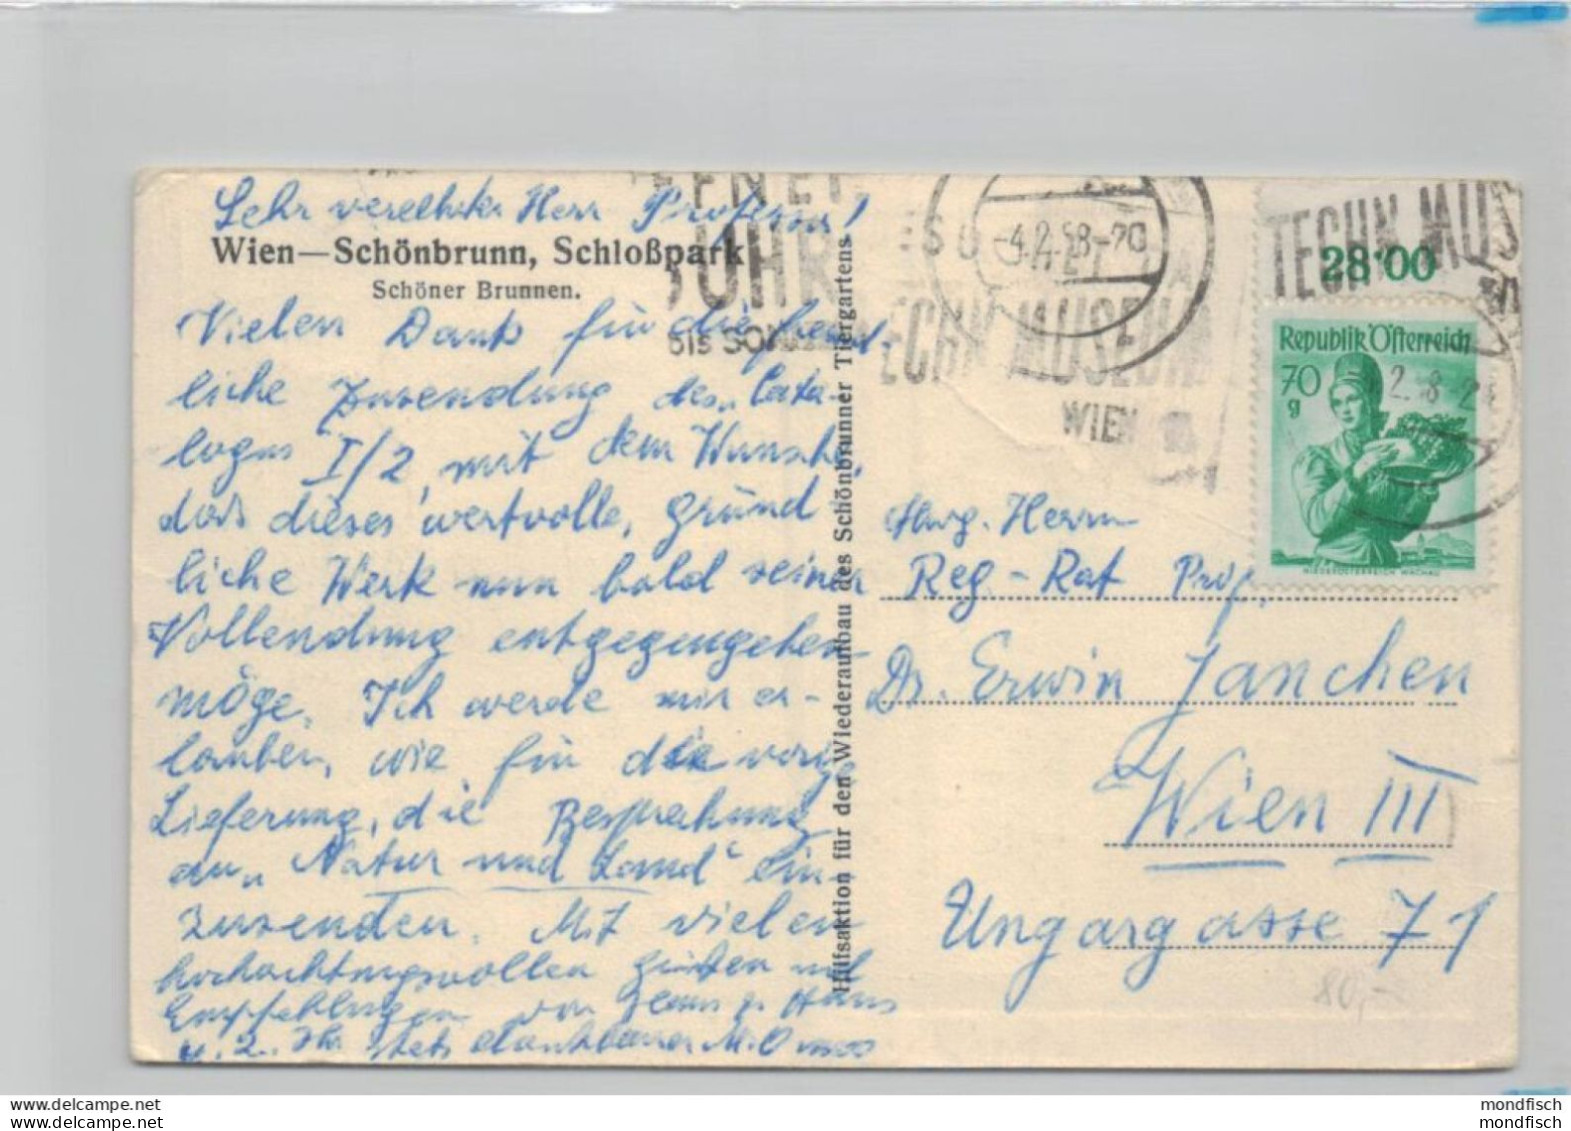 Sehr verehrter Herr Professor!
Wien—Schönbrunn, Schloßpark
Schöner Brunnen.
Vielen Dank für die freund-
liche Zusendung des „Cata-
logus I/2, mit dem Wunsche,
dass dieses wertvolle, gründ
liche Werk nun bald seiner
Vollendung entgegengehen
möge. Ich werde mir er-
lauben, wie für die vorig
Lieferung, die Besprechung
an „Natur und Land“ ein-
zusenden. Mit vielen
hochachtungsvollen Grüßen und
Empfehlungen von Haus z. Haus
Ihr stets dankbarer
Hilfsaktion für den Wiederaufbau des Schönbrunner Tiergartens
-4.2.58-20
TECHN MUSEUM
WIEN
TECHN MUS
28·00
Republik Österreich
70
g
NIEDERÖSTERREICH WACHAU
Herrn
Reg-Rat Prof.
Dr. Erwin Janchen
Wien III
Ungargasse 71
80,-
mondfisch
mondfisch